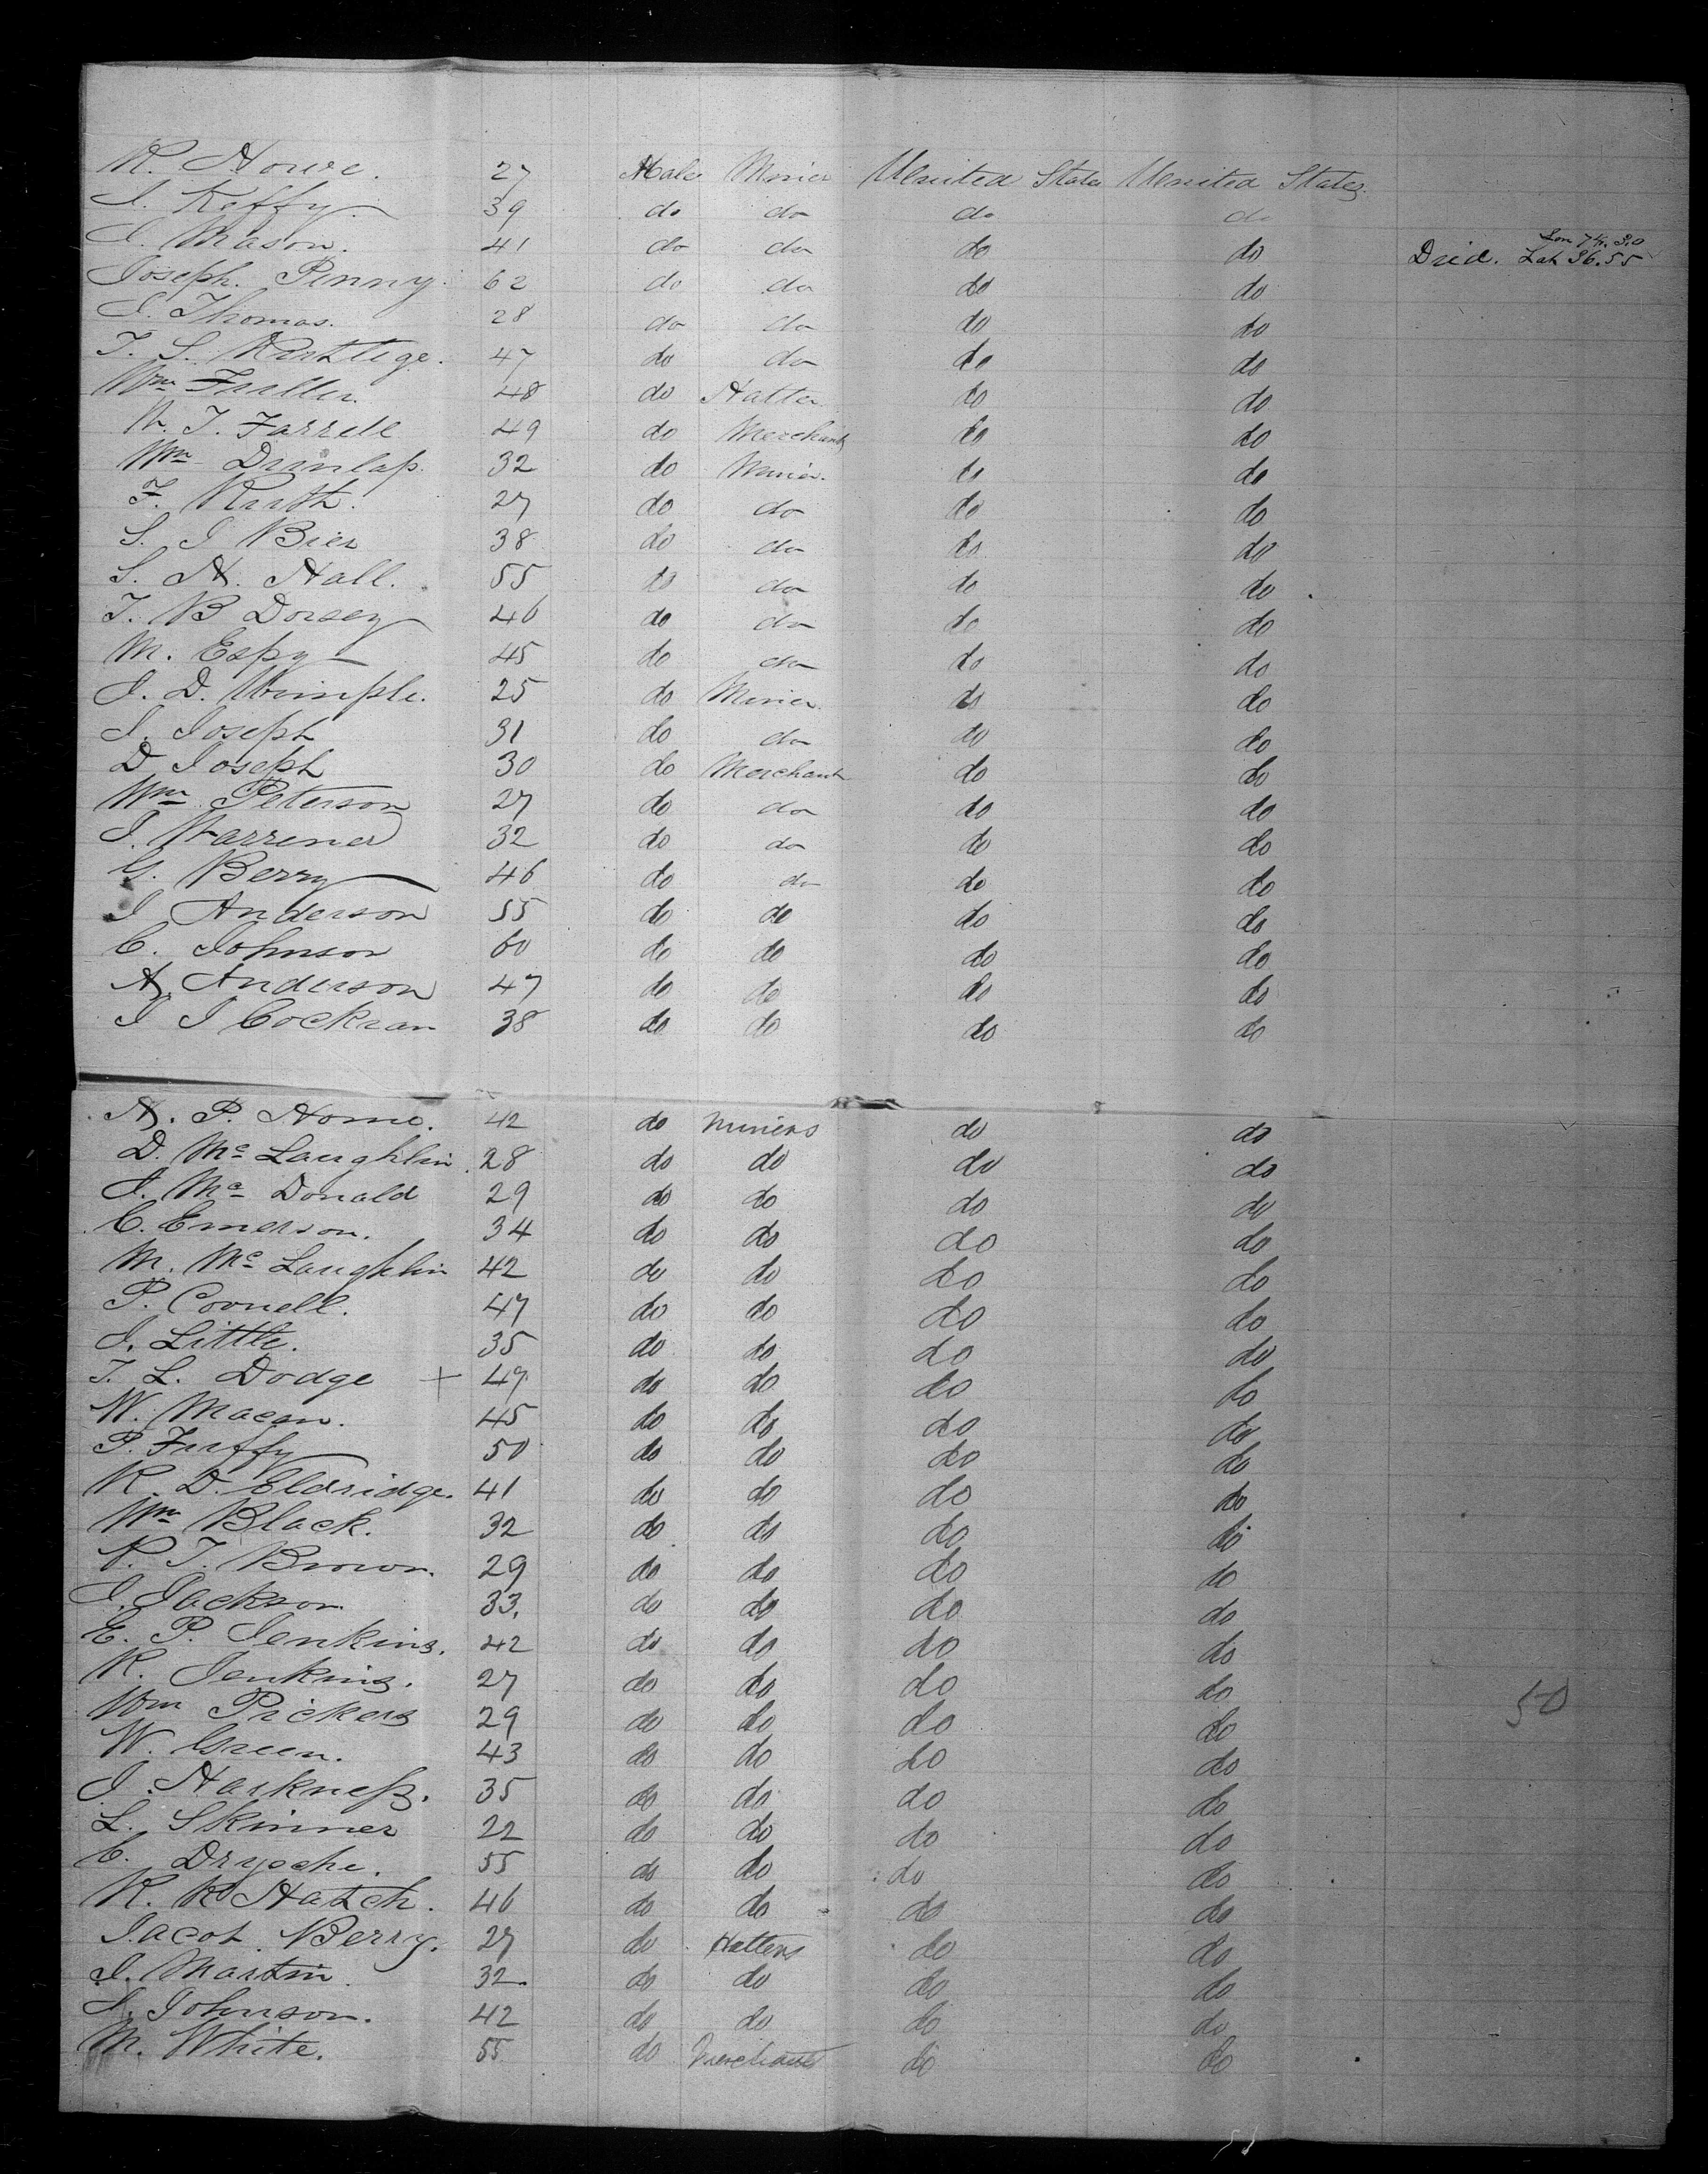 R. Howe. 27 Male Miner United States United States.
J. Keffy. 39 do do do do
J. Mason. 41 do do do do Died. Lon 74.30 Lat 36.55
Joseph. Penny. 62 do do do do
J. Thomas. 28 do do do do
T. S. 47 do do do do
Wm Fuller. 48 do Hatter do do
T. Farrell 49 do Merchant do do
Wm Dunlap. 32 do Miner. do do
F. Ruth. 27 do do do do
S. J Bier 38 do do do do
S. H. Hall. 55 do do do do
T. B Dorsey 46 do do do do
M. Espy 45 do do do do
J. D. Wimple. 25 do Miner do do
J. Joseph 31 do do do do
D Joseph 30 do Merchant do do
Wm Peterson 27 do do do do
J. Warrener 32 do do do do
G. Berry 46 do do do do
J Anderson 55 do do do do
C. Johnson 60 do do do do
A. Anderson 47 do do do do
J J Cockran 38 do do do do
P. 42 do miners do do
D. Mc Laughlin. 28 do do do do
J. Mc Donald 29 do do do do
C. Emerson. 34 do do do do
M. Mc Laughlin 42 do do do do
P. Connell. 47 do do do do
J. Little. 35 do do do do
T. L. Dodge + 49 do do do do
W. Macan. 45 do do do do
P. Furffy 50 do do do do
R. D. Eldridge. 41 do do do do
Wm Black. 32 do do do do
T. Brown. 29 do do do do
J. Jackson 33. do do do do
E. P. Jenkins. 42 do do do do
R. Jenkins. 27 do do do do 50
Wm Pickers 29 do do do do
W. Green. 43 do do do do
J. Harkness. 35 do do do do
L. Skinner 22 do do do do
C. 55 do do do do
R. R Hatch. 46 do do do do
Jacob. Berry. 27 do Hatters do do
J. Martin. 32. do do do do
J. Johnson. 42 do do do do
M. White. 55 do Merchant do do